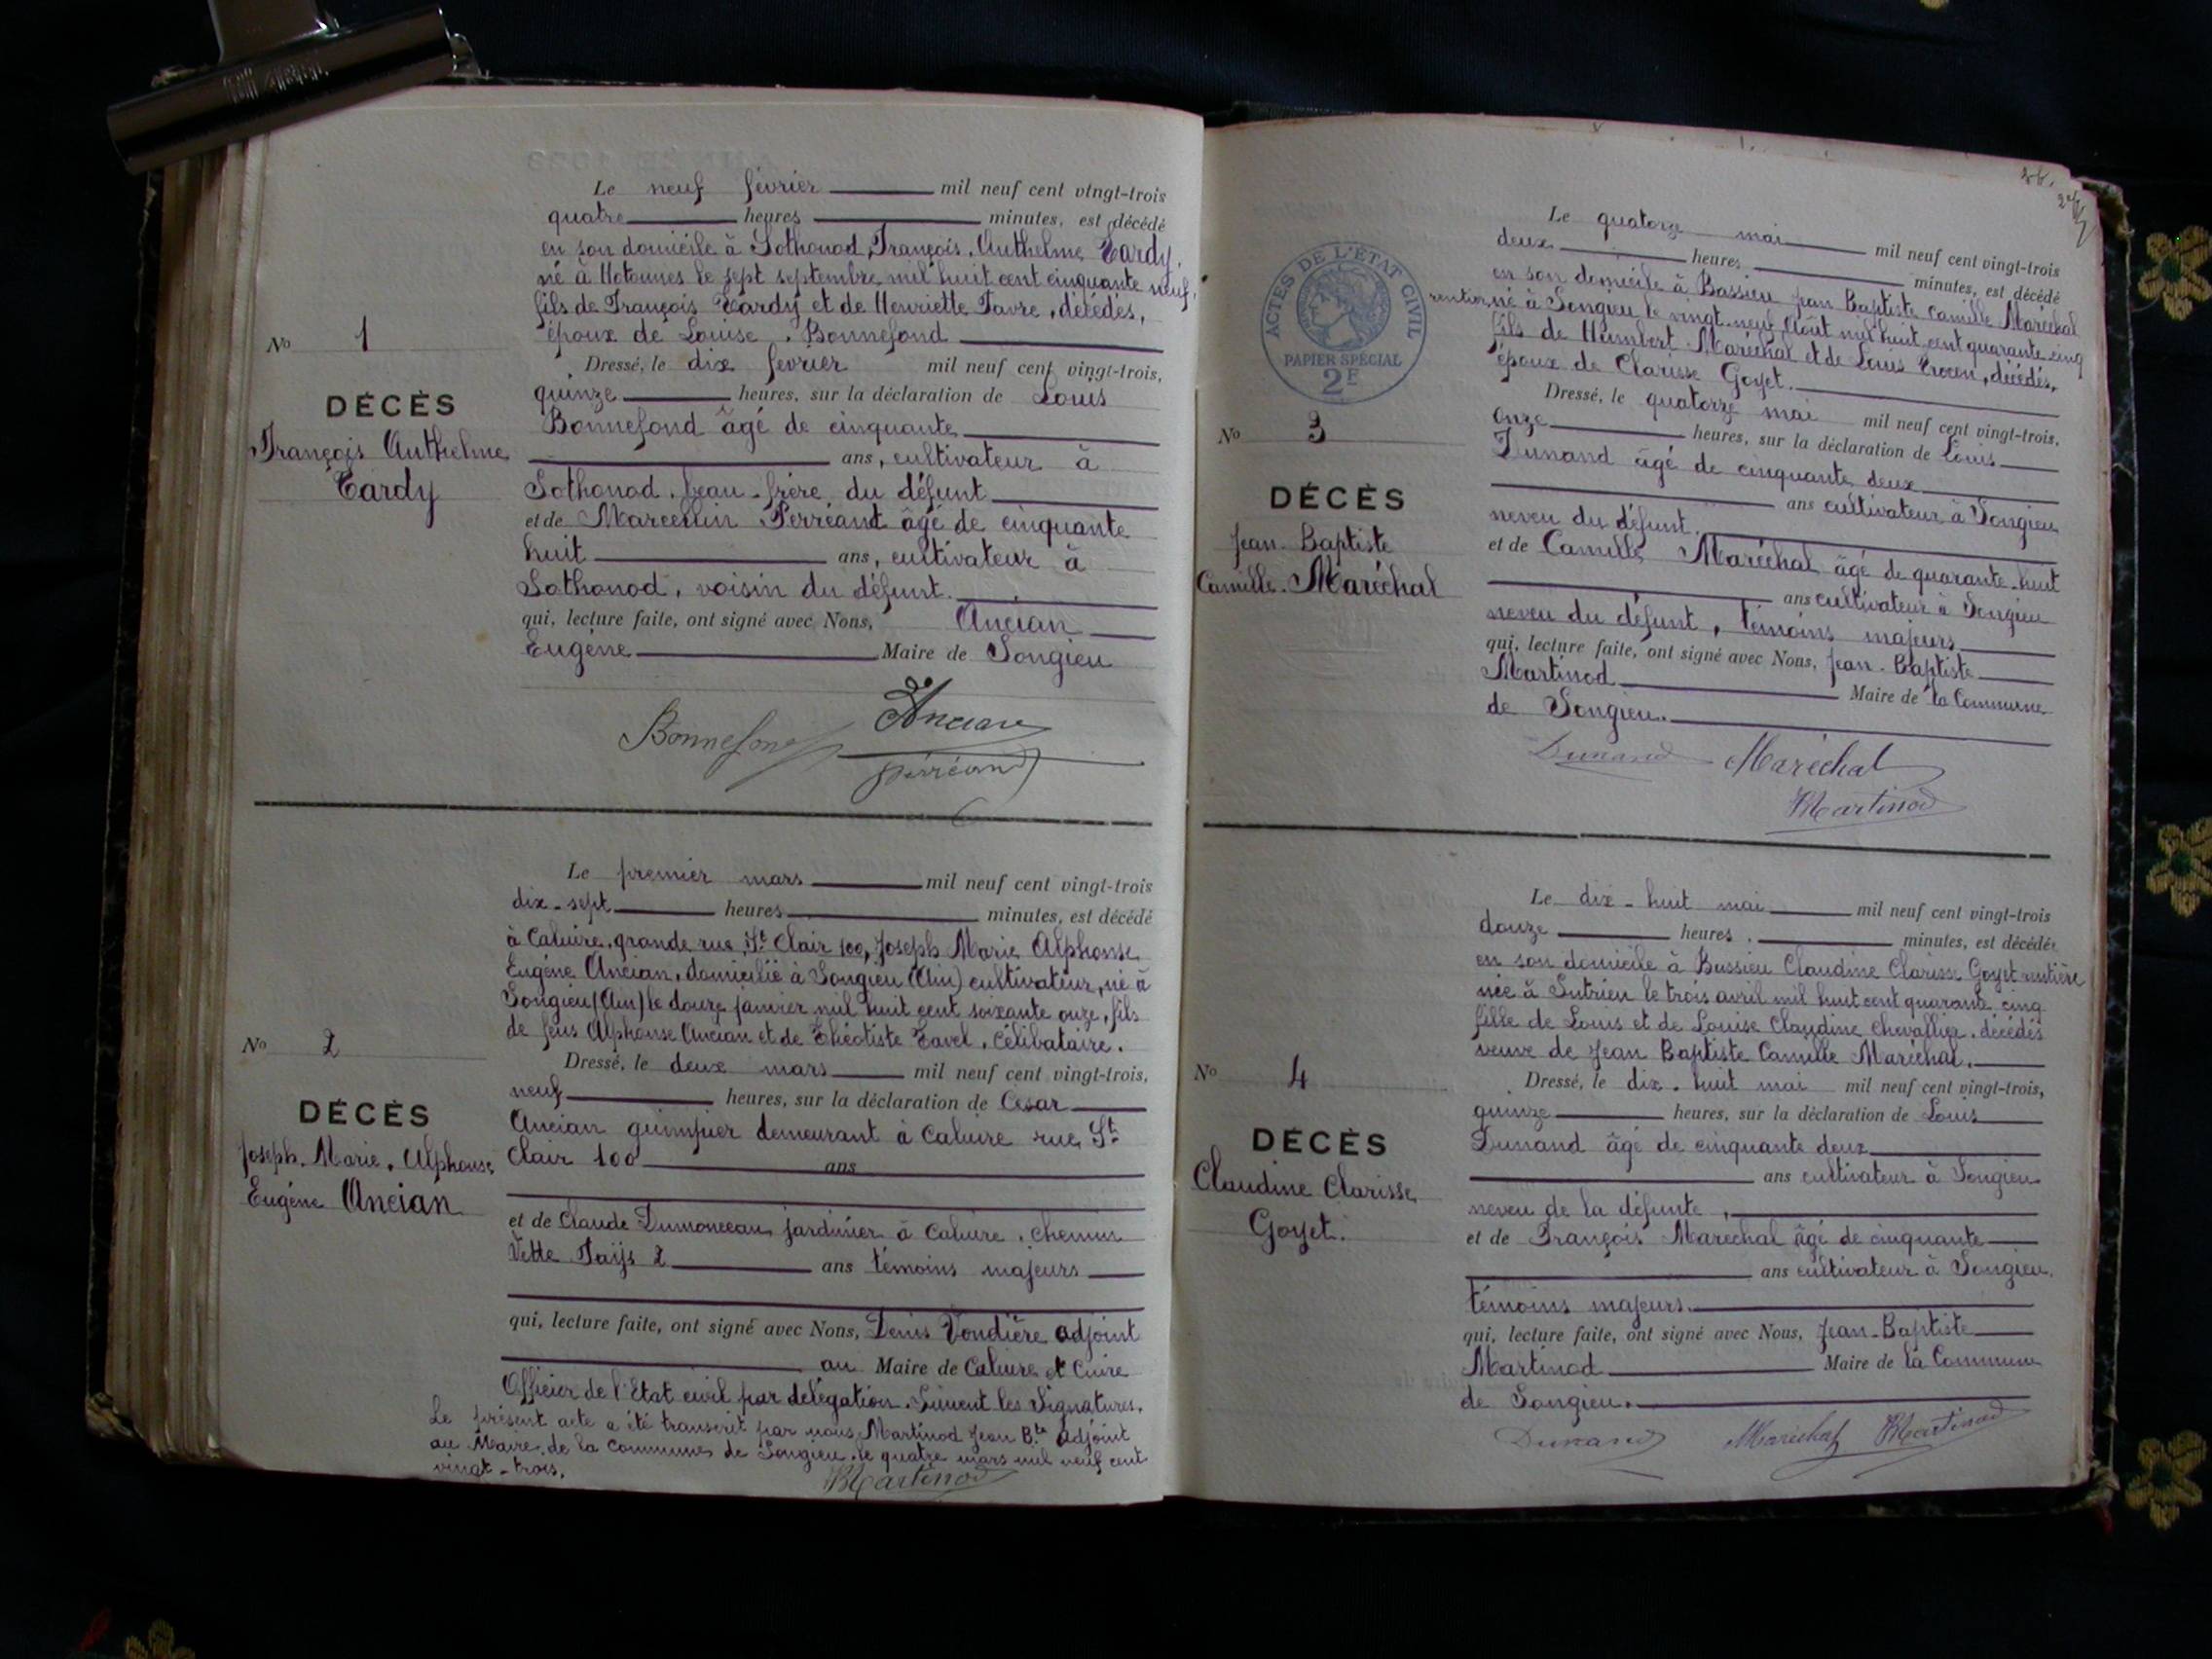 Le neuf février mil neuf cent vingt-trois
quatre heures minutes, est décédé
en son domicile à Sothonod, François, Anthelme Tardy,
né à Hotonnes le sept septembre mil huit cent cinquante neuf,
fils de François Tardy et de Henriette Favre, décédés,
époux de Louise Bonnefond
Dressé, le dix février mil neuf cent vingt-trois,
quinze heures, sur la déclaration de Louis
Bonnefond âgé de cinquante
ans, cultivateur à
Sothonod, beau-frère du défunt
et de Marcellin Perréant âgé de cinquante
huit ans, cultivateur à
Sothonod, voisin du défunt.
qui, lecture faite, ont signé avec Nous, Ancian
Eugène Maire de Songieu
No 1
DÉCÈS
François Anthelme
Tardy
Bonnefond Ancian
Perréand
Le premier mars mil neuf cent vingt-trois
dix-sept heures minutes, est décédé
à Caluire, grande rue St Clair 100, Joseph Marie Alphonse
Eugène Ancian, domicilié à Songieu (Ain) cultivateur, né à
Songieu (Ain) le douze janvier mil huit cent soixante onze, fils
de feus Alphonse Ancian et de Théotiste Tavel, célibataire.
Dressé, le deux mars mil neuf cent vingt-trois,
neuf heures, sur la déclaration de Cesar
Ancian guimpier demeurant à Caluire rue St
Clair 100 ans
et de Claude Dumonceau jardinier à Caluire, chemin
2 ans témoins majeurs
qui, lecture faite, ont signé avec Nous, Denis Vondière adjoint
au Maire de Caluire et Cuire
Officier de l'Etat civil par délégation. Suivent les Signatures.
Le présent acte a été transcrit par nous, Martinod Jean Bte Adjoint
au Maire de la Commune de Songieu, le quatre mars mil neuf cent
vingt-trois.
Martinod
No 2
DÉCÈS
Joseph, Marie, Alphonse
Eugène Ancian
ACTES DE L'ÉTAT CIVIL
PAPIER SPÉCIAL
2F
Le quatorze mai mil neuf cent vingt-trois
deux heures minutes, est décédé
en son domicile à Bassieu Jean Baptiste Camille Maréchal
rentier, né à Songieu le vingt-neuf Août mil huit cent quarante cinq
fils de Humbert Maréchal et de Louis, décédés,
époux de Clarisse Goyet.
Dressé, le quatorze mai mil neuf cent vingt-trois,
onze heures, sur la déclaration de Louis
Dunand âgé de cinquante deux
ans cultivateur à Songieu
neveu du défunt.
et de Camille Maréchal âgé de quarante-huit
ans cultivateur à Songieu
neveu du défunt, témoins majeurs
qui, lecture faite, ont signé avec Nous, Jean-Baptiste
Martinod Maire de la Commune
de Songieu.
No 3
DÉCÈS
Jean Baptiste
Camille Maréchal
Dunand Maréchal
Martinod
Le dix-huit mai mil neuf cent vingt-trois
douze heures minutes, est décédée
en son domicile à Bassieu Claudine Clarisse Goyet rentière
née à Sutrieu le trois avril mil huit cent quarante cinq
fille de Louis et de Louise Claudine Chevallier, décédés
veuve de Jean Baptiste Camille Maréchal.
Dressé, le dix-huit mai mil neuf cent vingt-trois,
quinze heures, sur la déclaration de Louis
Dunand âgé de cinquante deux
ans cultivateur à Songieu
neveu de la défunte,
et de François Marechal âgé de cinquante
ans cultivateur à Songieu,
témoins majeurs.
qui, lecture faite, ont signé avec Nous, Jean-Baptiste
Martinod Maire de la Commune
de Songieu.
No 4
DÉCÈS
Claudine Clarisse
Goyet.
Dunand Maréchal Martinod